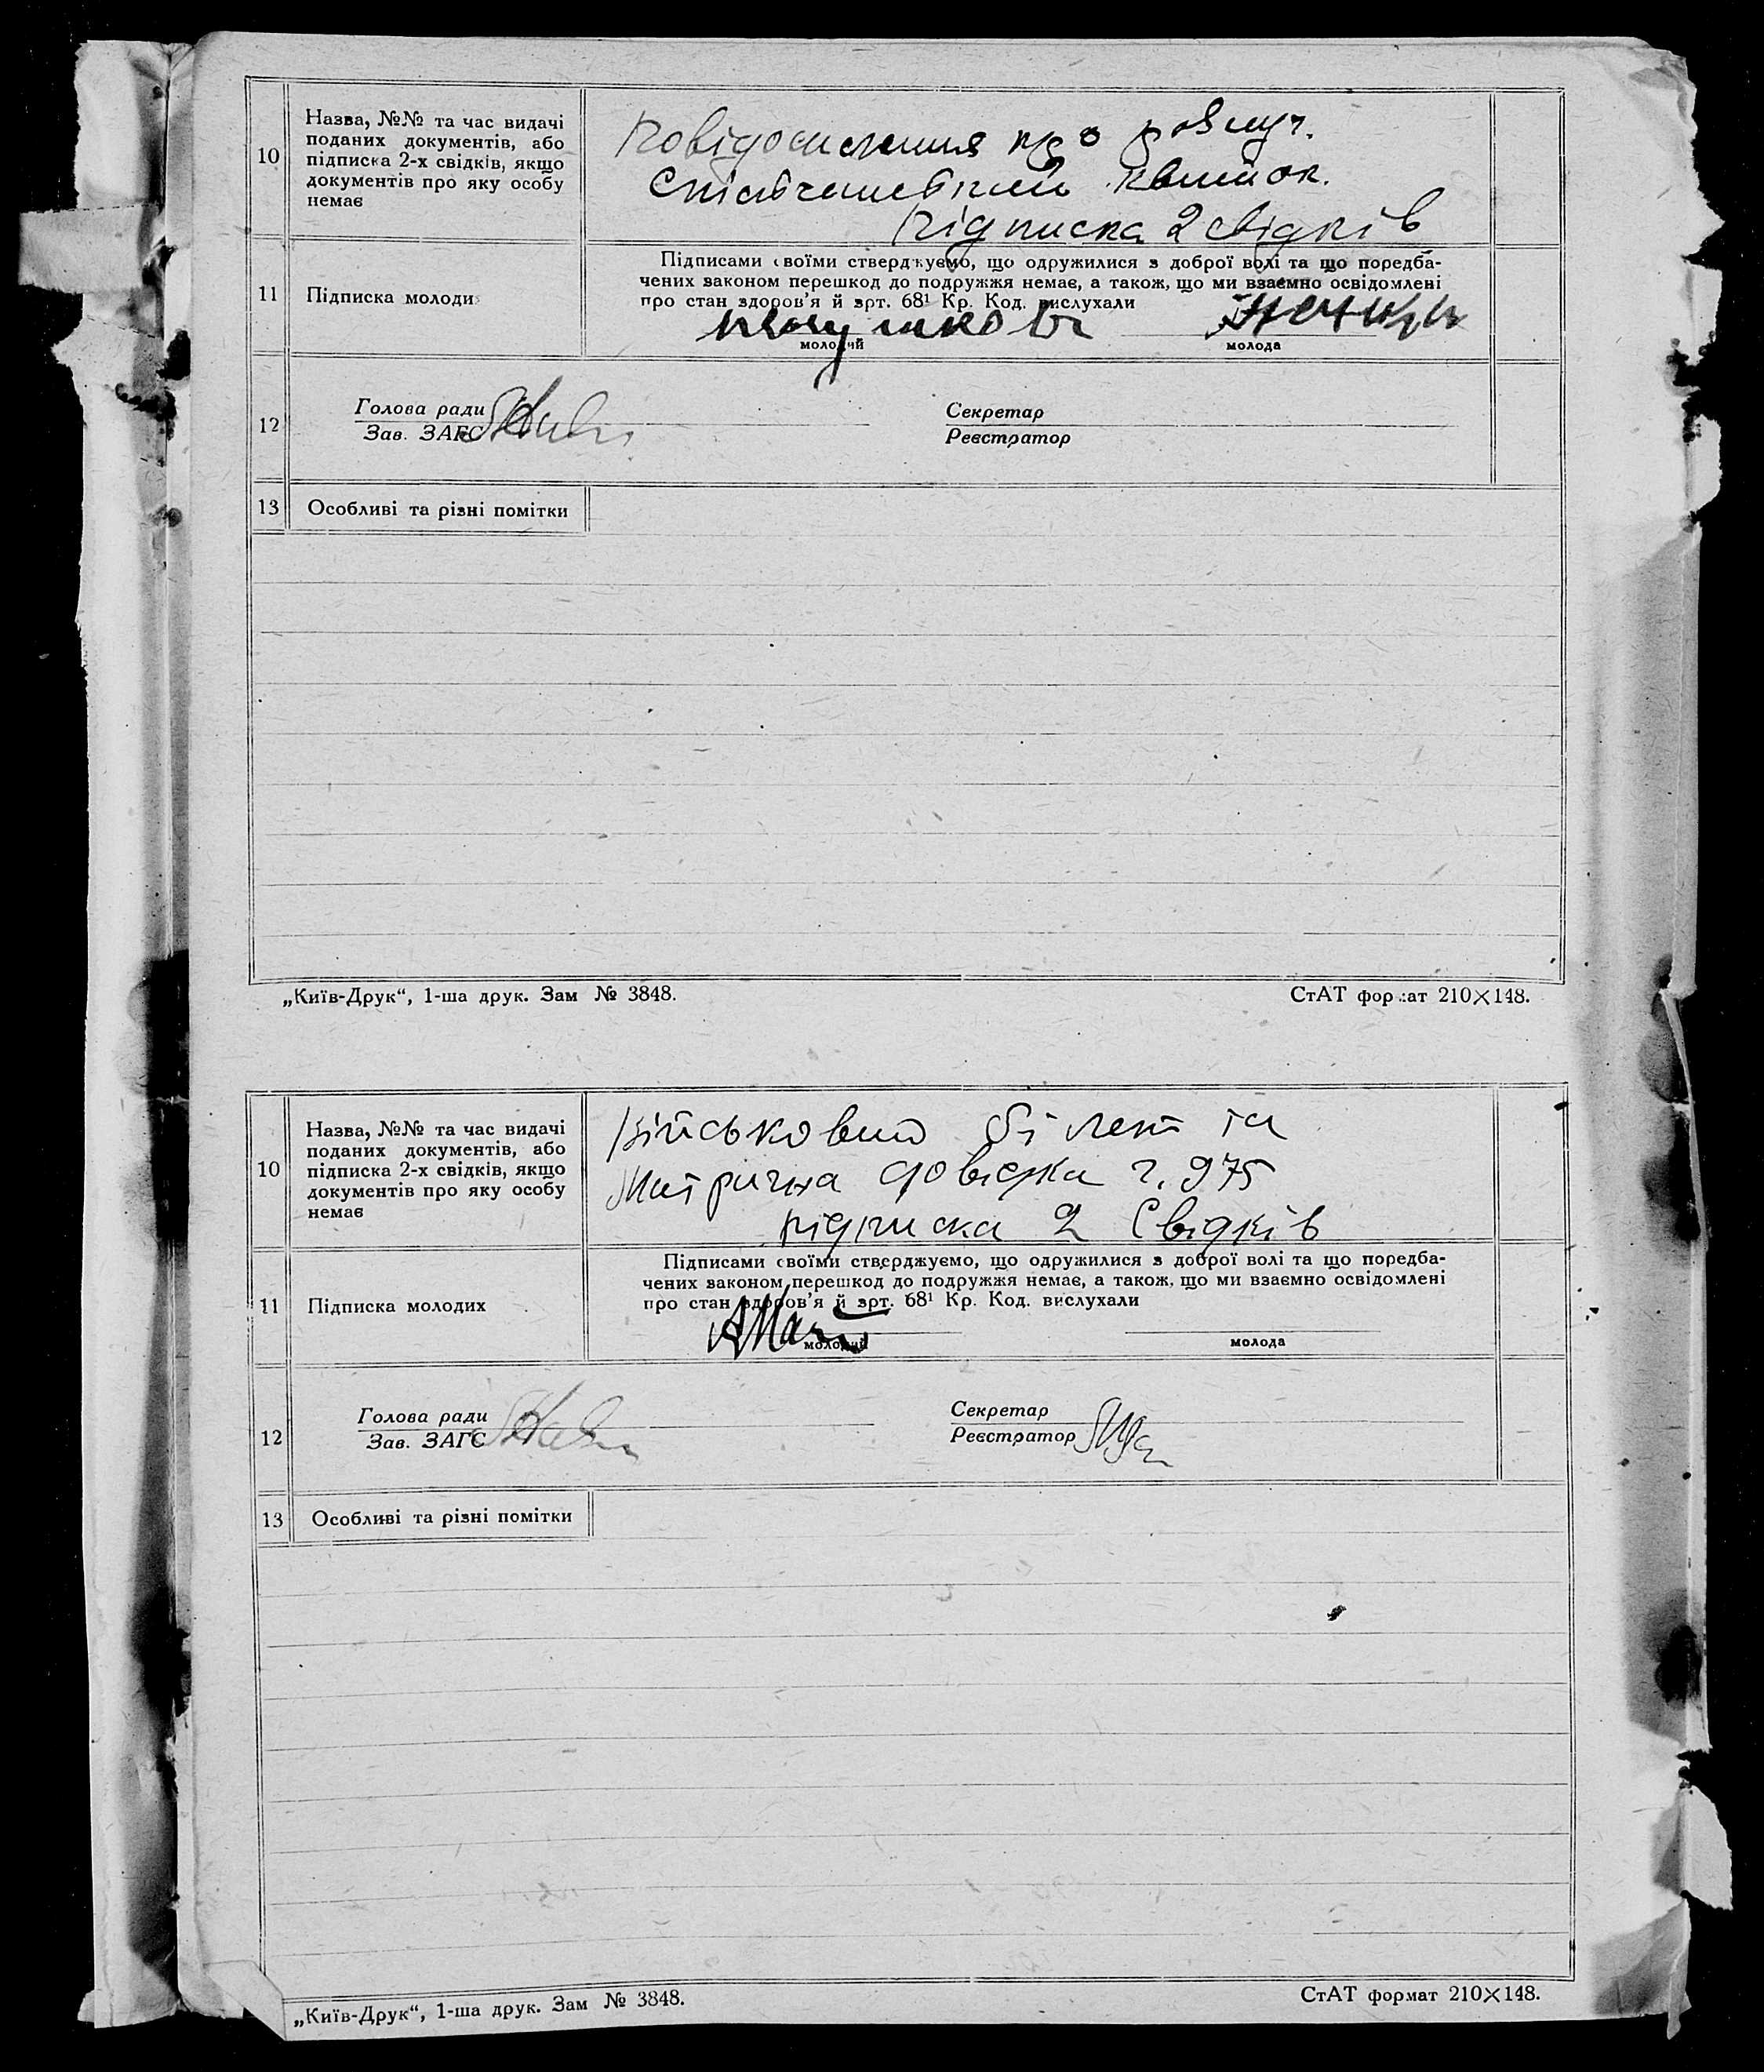 10
Назва, №№ та час видачі
поданих документів, або
підписка 2-х свідків, якщо
документів про яку особу
немає
Повідомлення про розлуч.
квиток.
підписка 2 свідків
11
Підписка молоди
Підписами своїми стверджуємо, що одружилися з доброї волі та що поредба-
чених законом перешкод до подружжя немає, а також, що ми взаємно освідомлені
про стан здоров'я й зрт. 68¹ Кр. Код. вислухали
молодий
молода
12
Голова ради
Зав. ЗАГС
Секретар
Реєстратор
13
Особливі та різні помітки
„Київ-Друк“, 1-ша друк. Зам № 3848.
СтАТ формат 210×148.
10
Назва, №№ та час видачі
поданих документів, або
підписка 2-х свідків, якщо
документів про яку особу
немає
Військовий білет та
Метрична довідка ч. 975
підписка 2 Свідків
11
Підписка молодих
Підписами своїми стверджуємо, що одружилися з доброї волі та що поредба-
чених законом перешкод до подружжя немає, а також, що ми взаємно освідомлені
про стан здоров'я й зрт. 68¹ Кр. Код. вислухали
молодий
молода
12
Голова ради
Зав. ЗАГС
Секретар
Реєстратор
13
Особливі та різні помітки
„Київ-Друк“, 1-ша друк. Зам № 3848.
СтАТ формат 210×148.